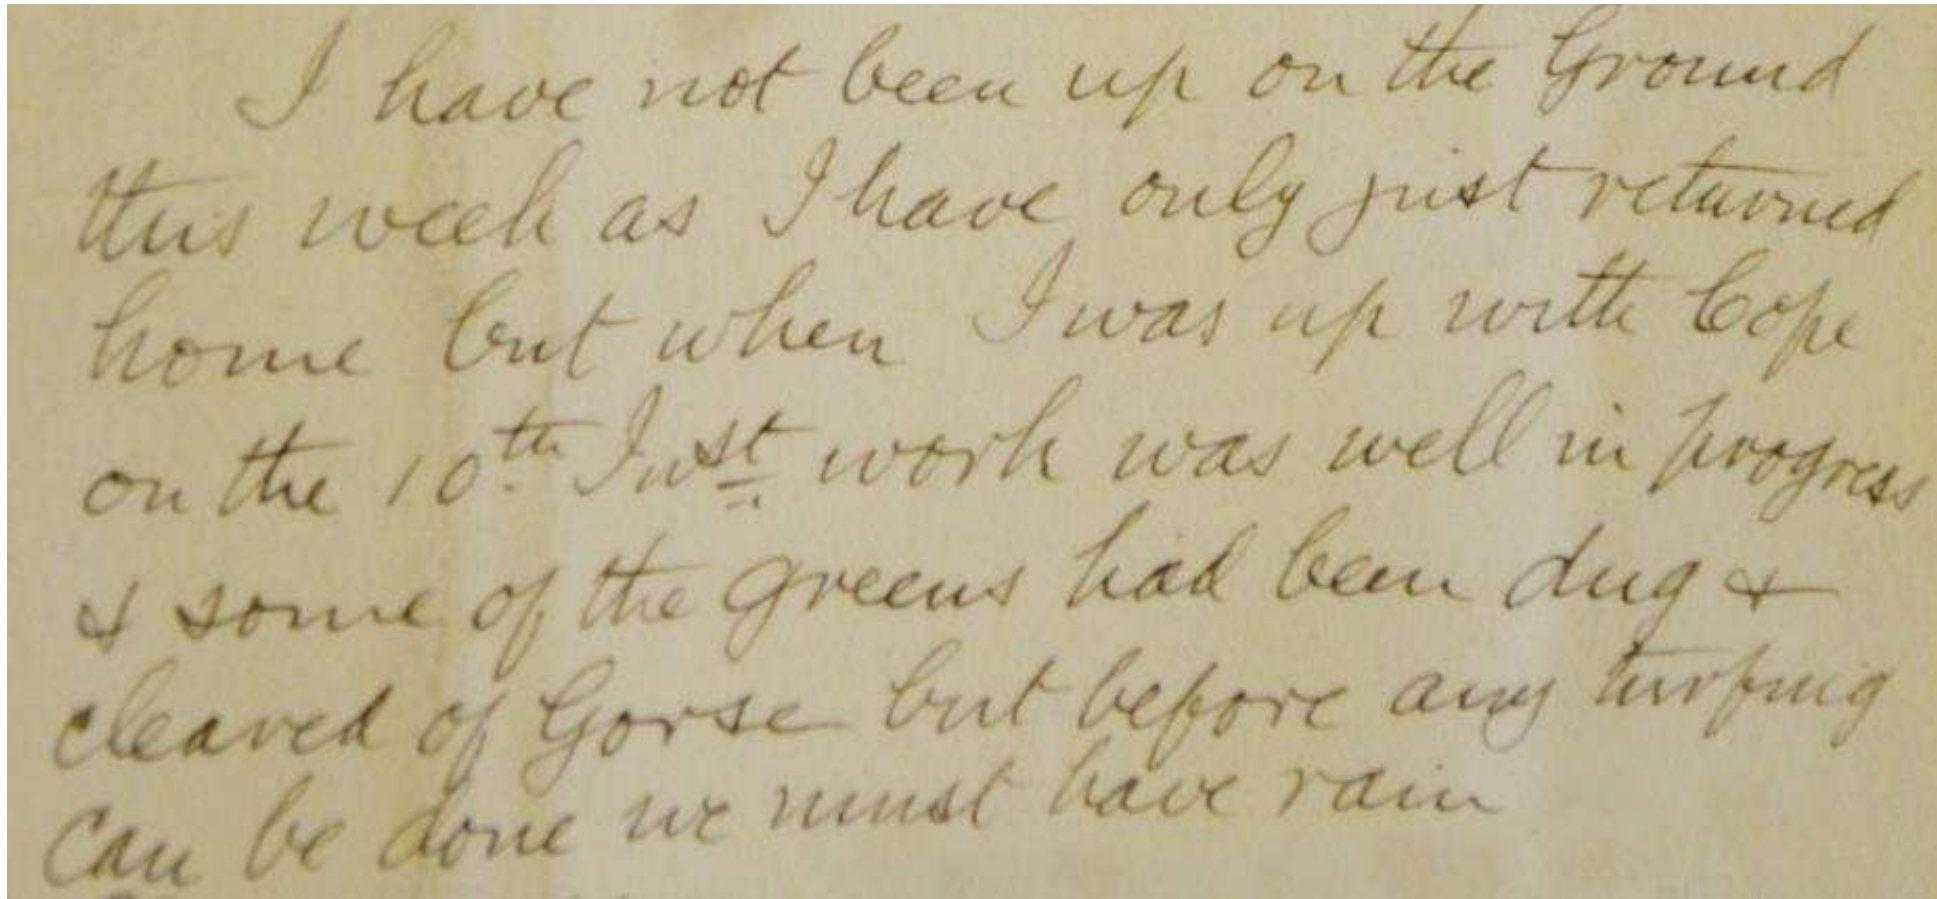 I have not been up on the Ground
this week as I have only just returned
home but when I was up with Cope
on the 10th Inst. work was well in progress
& some of the greens had been dug &
cleared of Gorse but before any turfing
can be done we must have rain